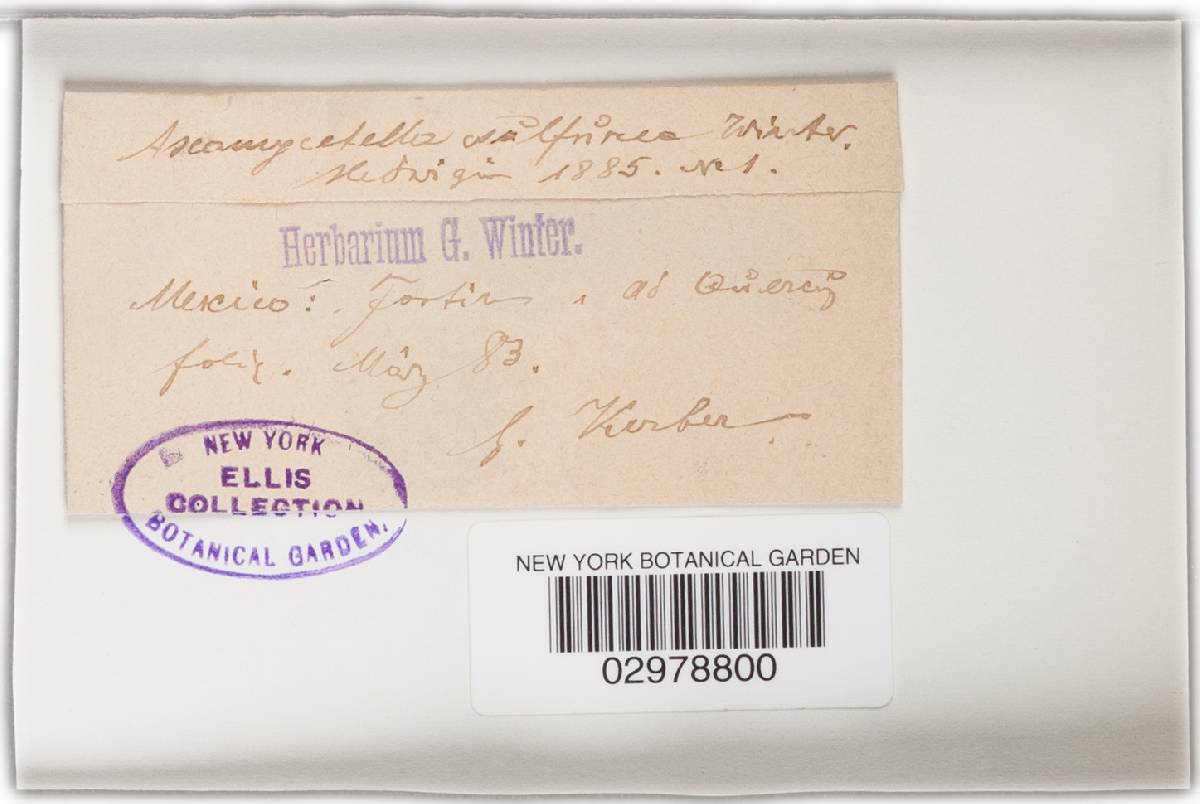 Ascomycetella sulfurea Winter.
Hedwigia 1885. No 1.
Herbarium G. Winter.
Mexico: Fortin, ad Quercus
folia. März 83.
Kerber
NEW YORK
ELLIS
COLLECTION
BOTANICAL GARDEN.
NEW YORK BOTANICAL GARDEN
02978800